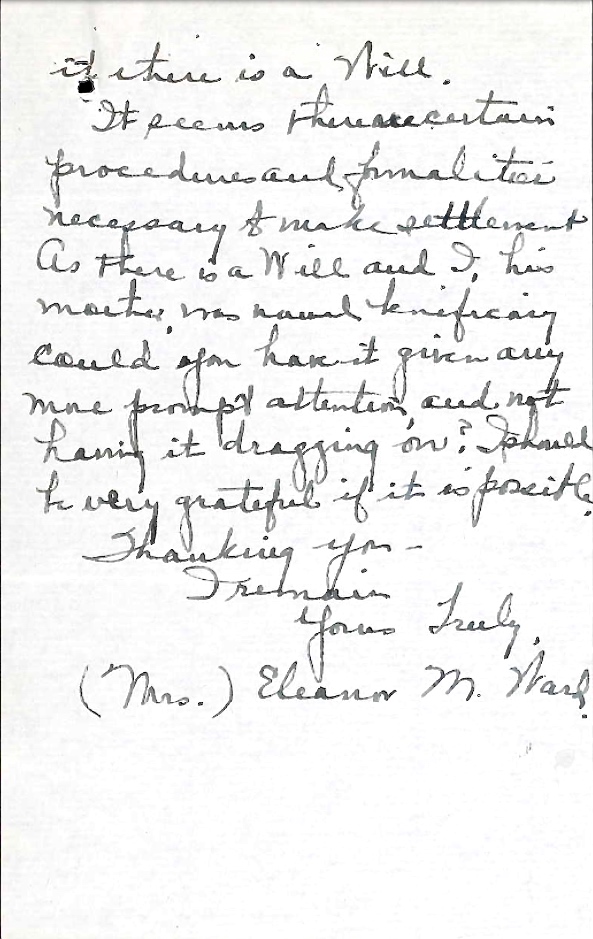 if there is a Will.
It seems there are certain
procedures and formalities
necessary to make settlement
As there is a Will and I, his
mother, was named benificiary
could you have it given any
more prompt attention, and not
having it dragging on? I should
be very grateful if it is possible.
Thanking you –
I remain
Yours Truly,
(Mrs.) Eleanor M. Ward.